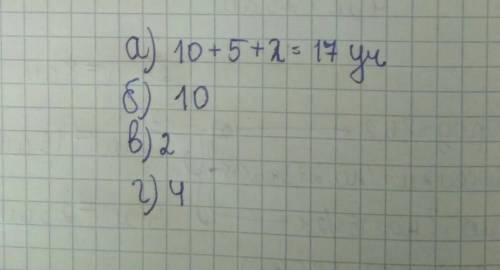 а) 10 + 5 + 2 = 17 уч
б) 10
в) 2
г) 4